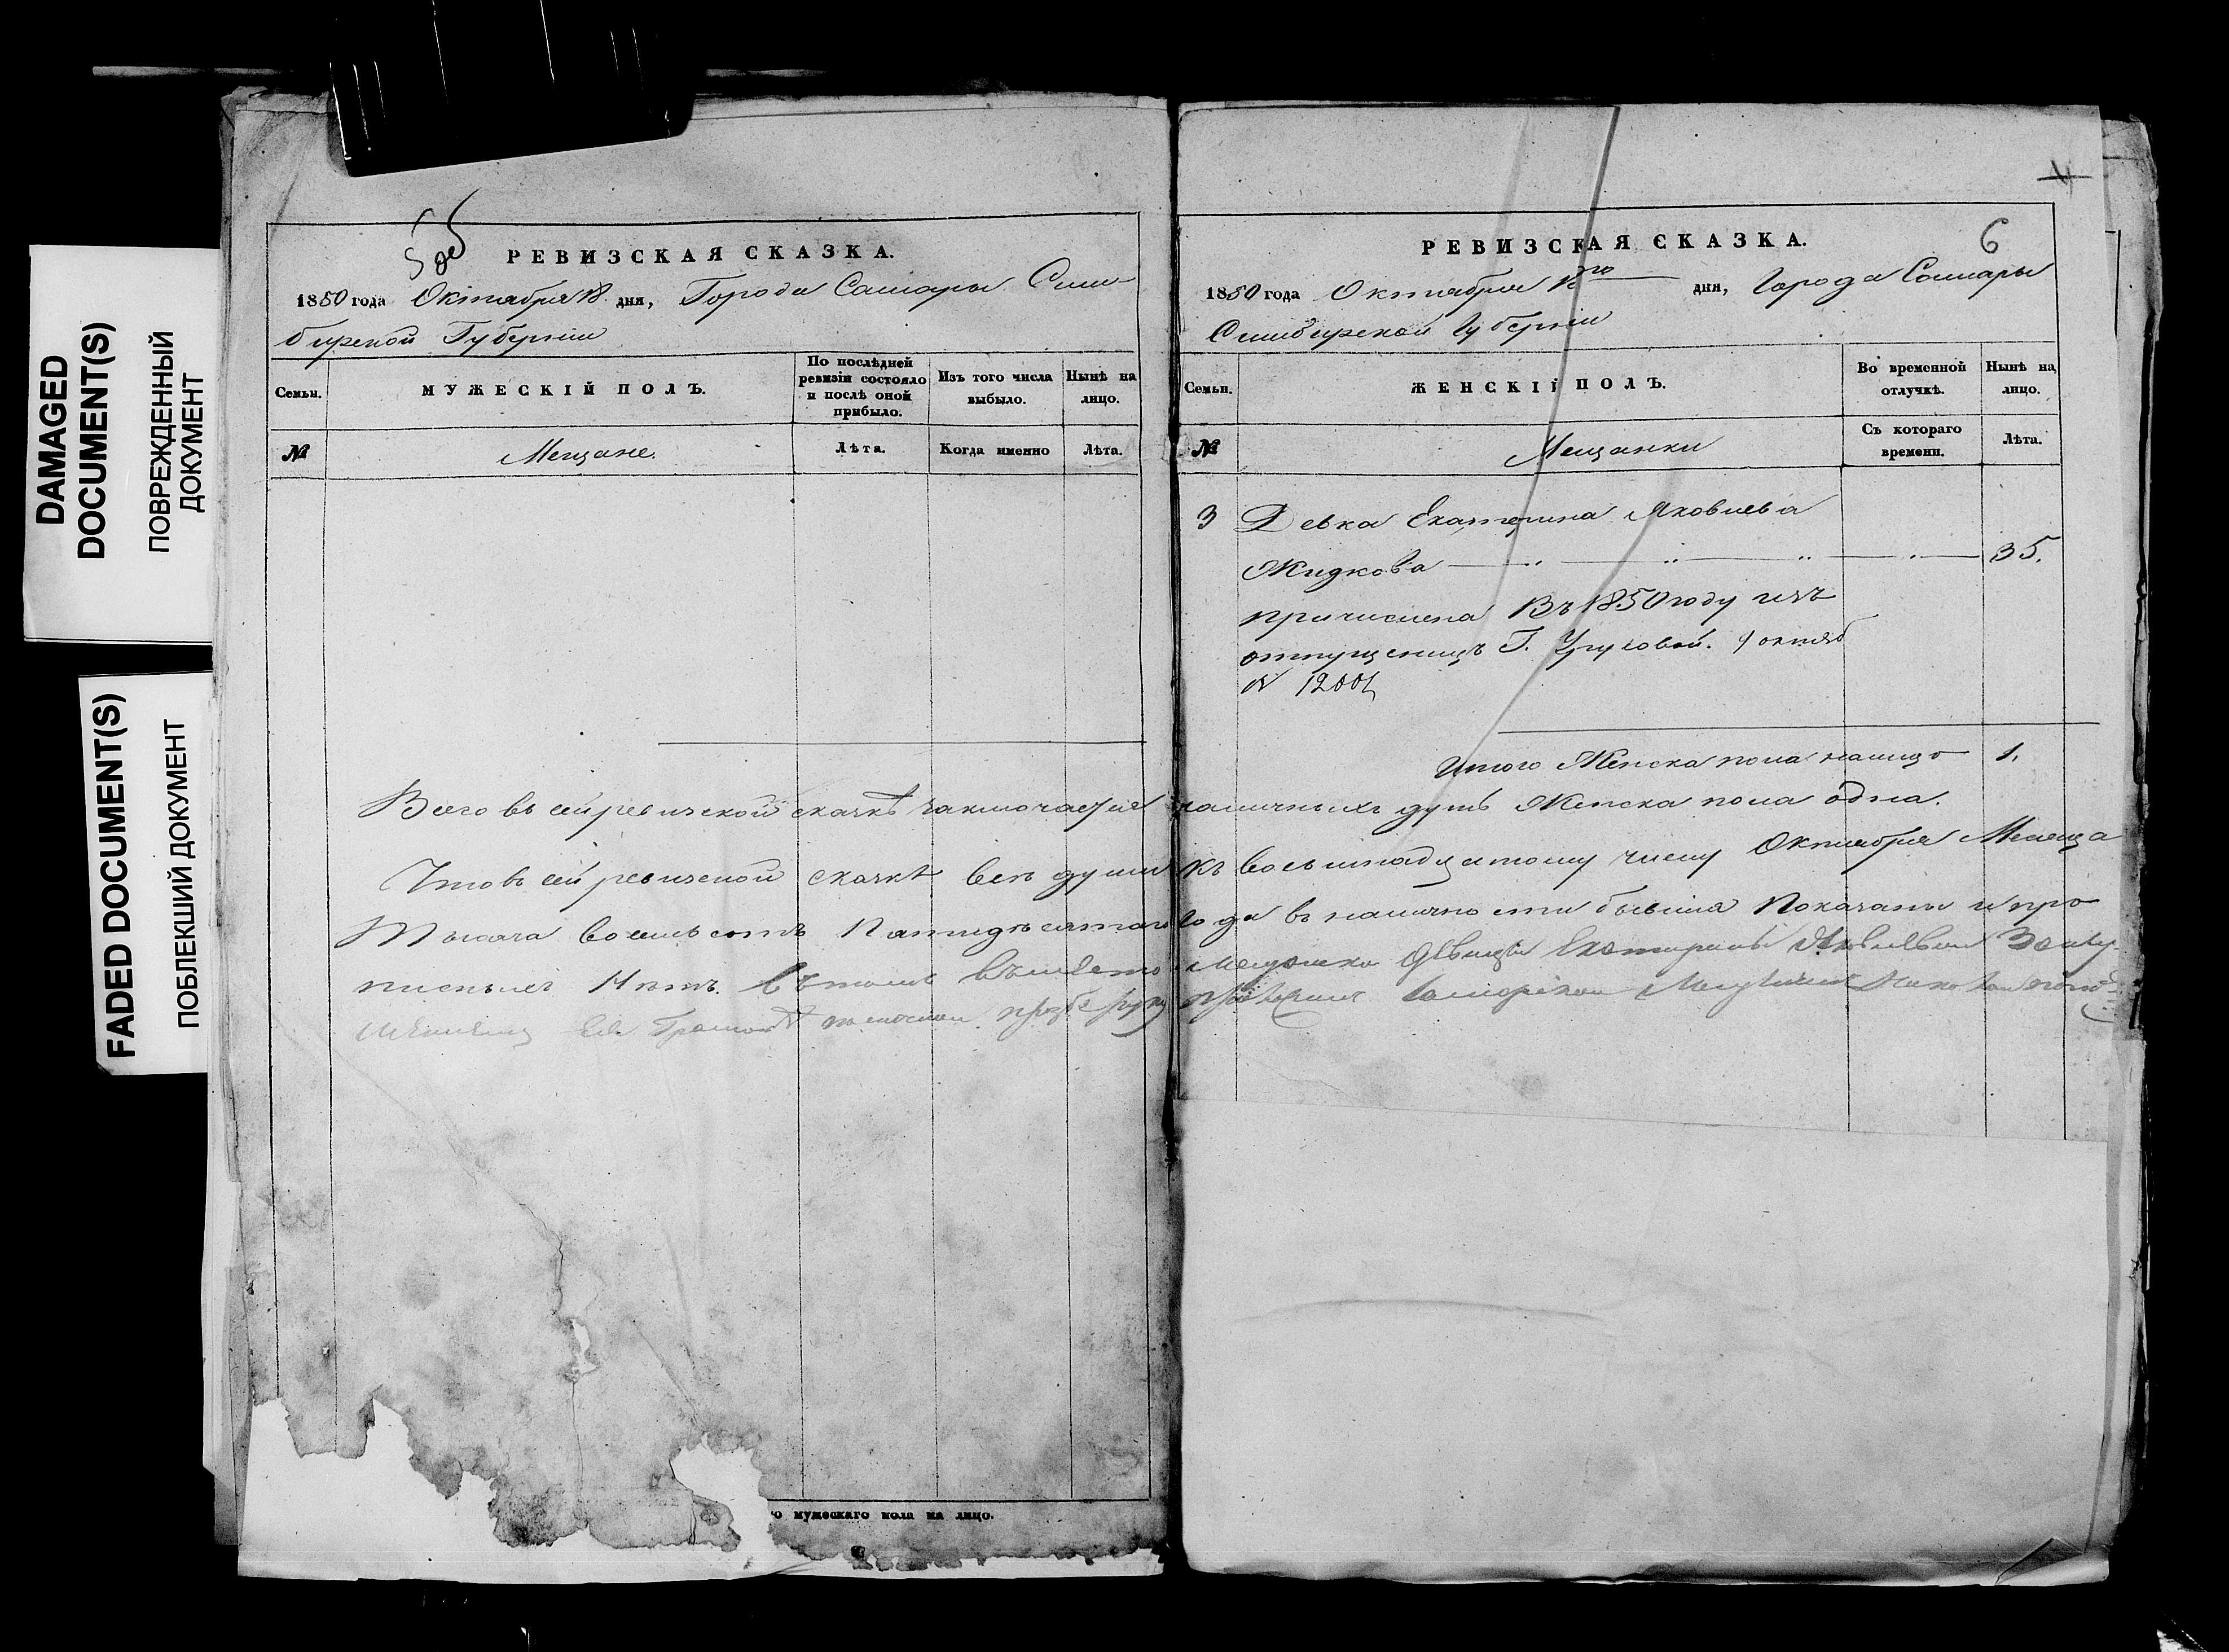 DAMAGED
DOCUMENT(S)
ПОВРЕЖДЕННЫЙ
ДОКУМЕНТ
FADED DOCUMENT(S)
ПОБЛЕКШИЙ ДОКУМЕНТ
РЕВИЗСКАЯ СКАЗКА.
1850 года Октября 18 дня, Города Самары Сим-
бирской Губернiи
Семьи.
МУЖЕСКІЙ ПОЛЪ.
По послѣдней
ревизіи состояло
и послѣ оной
прибыло.
Изъ того числа
выбыло.
Нынѣ на
лицо.
№
Мещане.
Лѣта.
Когда именно
Лѣта.
о мужескаго пола на лицо.
6
РЕВИЗСКАЯ СКАЗКА.
1850 года Октября дня, Города Самары
Симбирской Губернiи
Семьи.
ЖЕНСКІЙ ПОЛЪ.
Во временной
отлучкѣ.
Нынѣ на
лицо.
№
Мещанки
Съ котораго
времени.
Лѣта.
3 Девка Екатерина Яковлева
Жидкова 35.
причислена Въ 1850 году изъ
отпущеницъ Г. октяб
N
Итого Женска пола налицо 1.
Всего въ сей ревизской сказкѣ заключается наличныхъ душъ Женска пола одна.
Что въ сей ревизской сказкѣ все души къ восьмнадцатому числу Октября Месяца
Тысяча восемьсотъ Пятидесятаго года въ наличности бывшiя Показаны и про
писныхъ Нетъ. Въ томъ вместо Екатерины Яковлевой